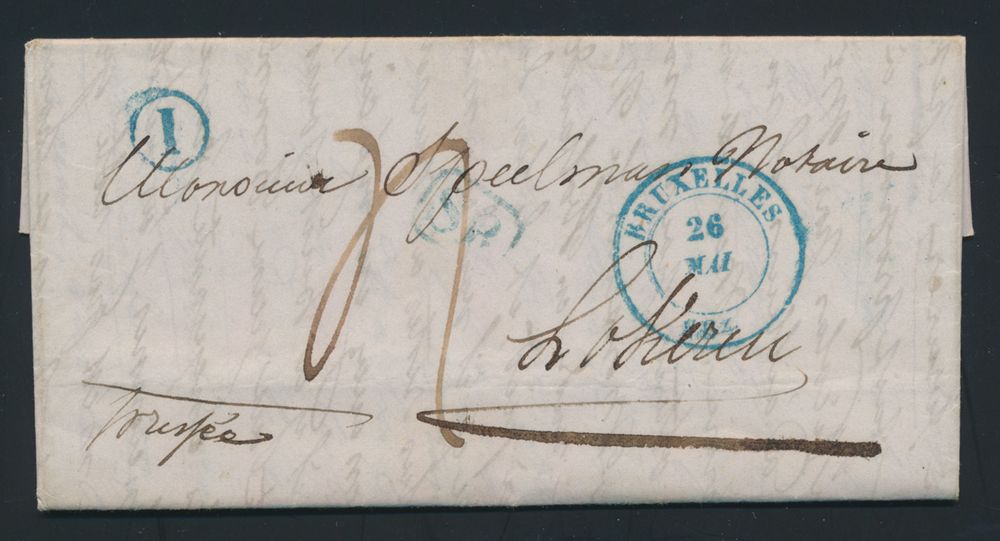 I
Monsieur Speelman, Notaire
BRUXELLES
26
MAI
Lokeren
pressée